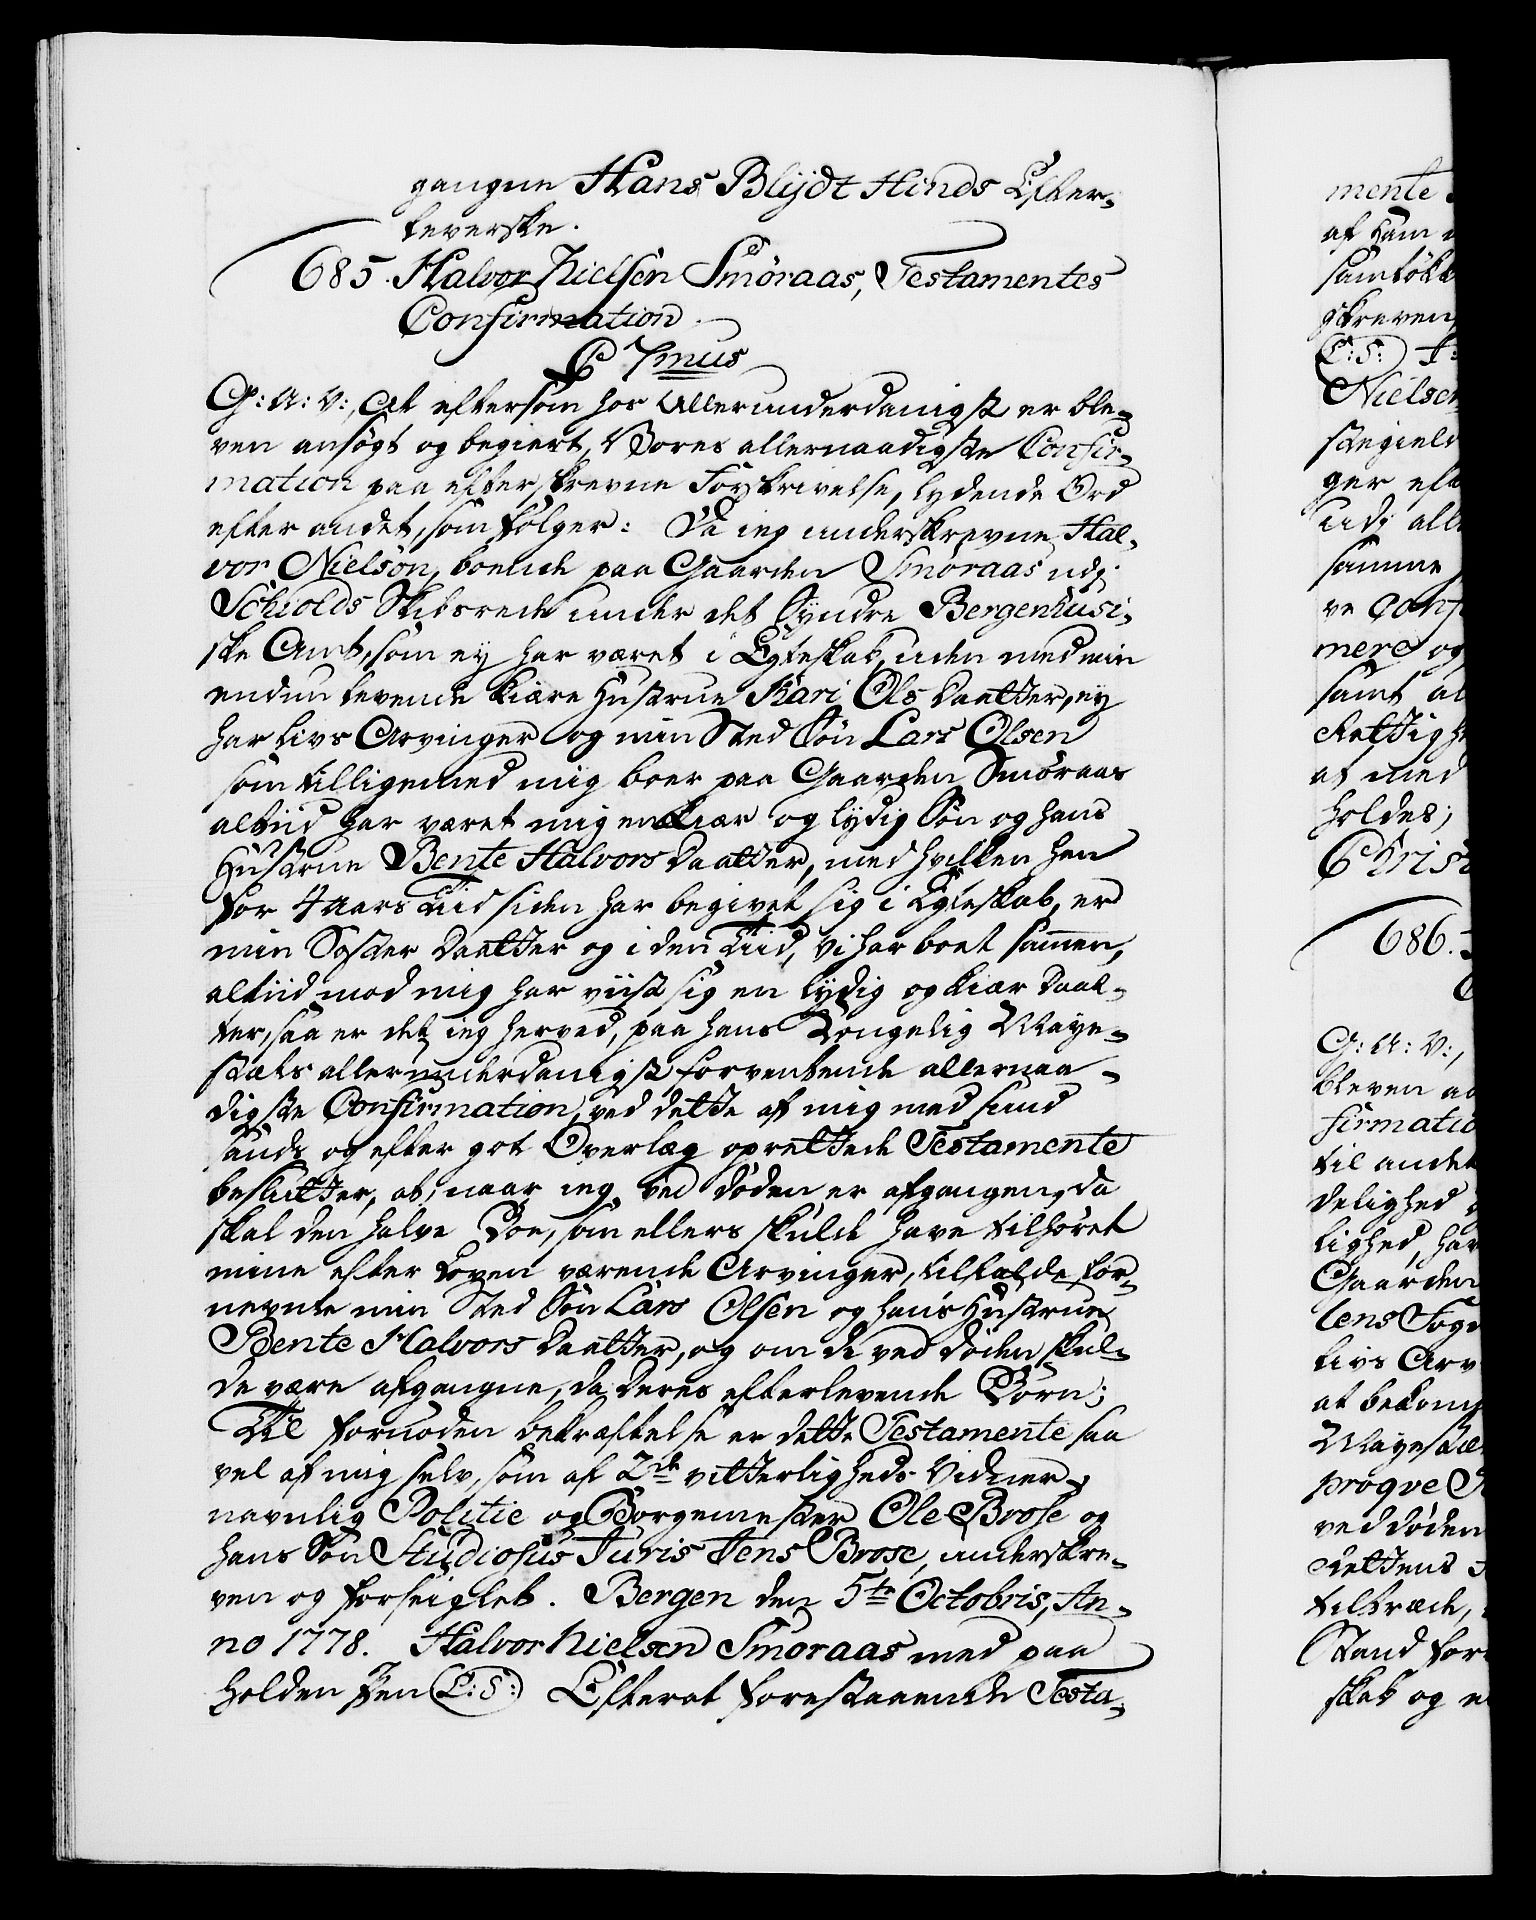 gangne Hans Blijdt Hinds Efter-
leverske.
685. Halvor Nielsen Smöraas, Testamentes
Confirmation.
C 7mus
G: A: V:, At eftersom hos Allerunderdanigst er ble-
ven ansögt og begiert Vores allernaadigste Confir-
mation paa efterskrevne Forskrivelse, lydende Ord
efter andet, som fölger: Da ieg underskrevne Hal-
vor Nielsön, boende paa Gaarden Smöraas udj
Schiolds Skibsrede under det Syndre Bergenhusi-
ske Amt, som ey har været i Egteskab, uden med min
endnu levende kiære Hustrue Kari Ols Daatter, ey
har Livs Arvinger og min Sted Sön Lars Olsen
som tilligemed mig boer paa Gaarden Smöraas
altiid har været mig en kiær og lydig Sön og hans
Hustrue Bente Halvors Daatter, med hvilken han
for 4 Aars Tiid siden har begivet sig i Egteskab, er
min Söster Daatter og i den Tiid, vi har boet sammen,
altiid mod mig har viist sig en lydig og kiær Daat-
ter, saa er det ieg herved, paa Hans Kongelig Maye-
stæts allerunderdanigst forventende allernaa-
digste Confirmation, ved dette af mig med sund
Sands og efter got Overlæg oprettede Testamente
beslutter, at, naar ieg ved Döden er afgangen, da
skal den halve Boe, som ellers skulde have tilhöret
mine efter Loven værende Arvinger, tilfalde for-
nevnte min Sted Sön Lars Olsen og hans Hustrue
Bente Halvors Daatter, og om de ved Döden skul-
de være afgangne, da deres efterlevende Börn;
Til fornöden bekræftelse er dette Testamente saa
vel af mig selv, som af 2de vitterligheds Vidner,
navnlig Politie og Borgemester Ole Brose og
hans Sön Studiosus Juris Jens Brose, underskre-
ven og forseiglet. Bergen den 5te Octobris, An-
no 1778. Halvor Nielsen Smoraas med paa
holden Pen (L: S:) Efterat forestaaende Testa-
mente
af Ham
samtökk
gskreven
(L: S:)
Nielsen
skegield
ger eft
udj all
samme
ve Conf
mere og
samt al
Rettighe
at med
holdes;
Chris
686.
G: A: V:,
bleven an
firmatio
til andet
delighed
lighed, har
Gaarden
lens Fogd
Livs Arv
at bekom
Mayestæ
pröqve
ved Döden
Rettens
tiltræde,
Stand for
skab og e